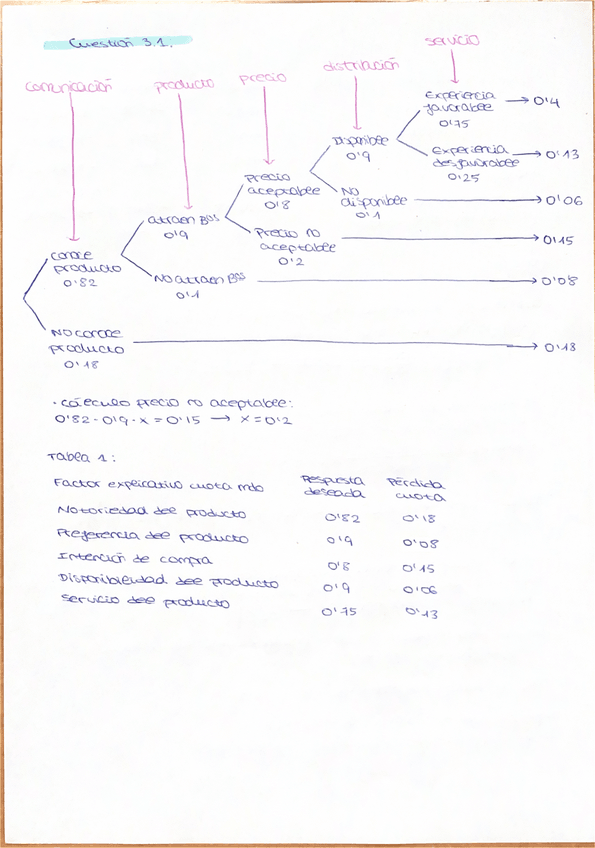 Cuestión 3.1.
servicio
distribución
comunicación producto precio
Experiencia
favorable → 0'4
0'75
Disponible
0'9
Experiencia
desfavorable → 0'13
0'25
Precio
aceptable
0'8
No
disponible → 0'06
0'1
atraen Bºs
0'9
Precio no
aceptable → 0'15
0'2
conoce
producto
0'82
No atraen Bºs → 0'08
0'1
No conoce
producto → 0'18
0'18
· cálculo precio no aceptable:
0'82 · 0'9 · x = 0'15 → x = 0'2
Tabla 1:
Factor explicativo cuota mdo Respuesta deseada Pérdida cuota
Notoriedad del producto 0'82 0'18
Preferencia del producto 0'9 0'08
Intención de compra 0'8 0'15
Disponibilidad del producto 0'9 0'06
Servicio del producto 0'75 0'13